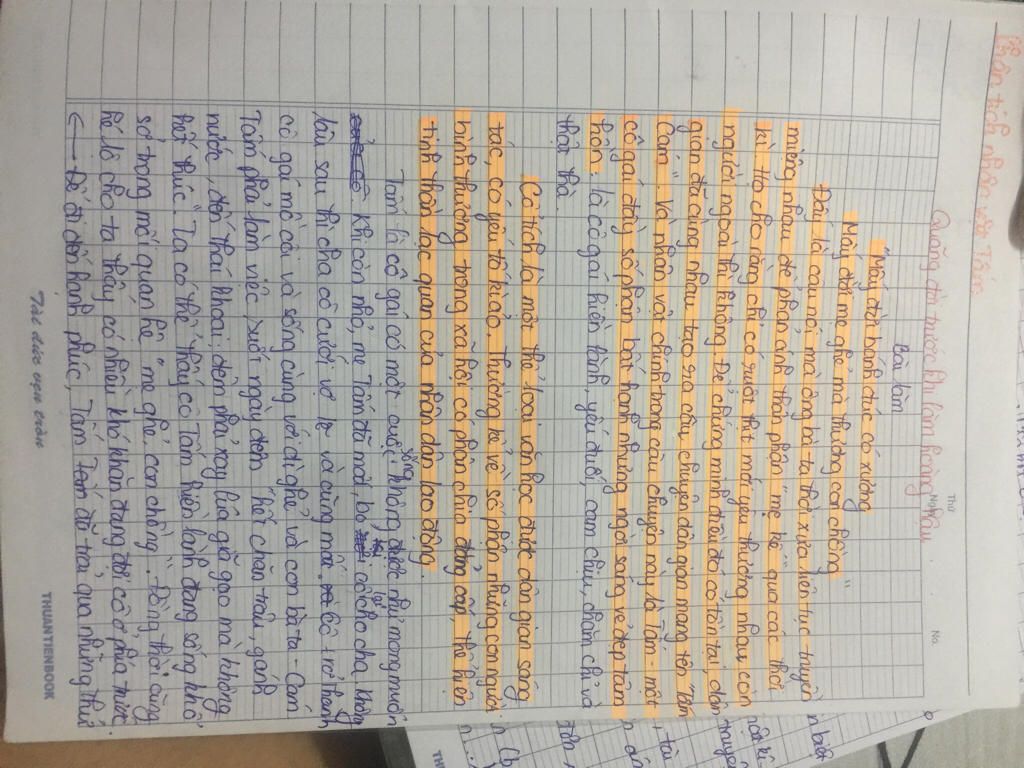 Phân tích nhân vật Tấm
Quãng đời trước khi làm hoàng hậu
Thứ
Ngày
No.
Bài làm
"Mấy đời bánh đúc có xương
Mấy đời mẹ ghẻ mà thương con chồng"
Đấy là câu nói mà ông bà ta thời xưa liên tục truyền
miệng nhau để phản ánh thân phận "mẹ kế" qua các thời
kì. Họ cho rằng chỉ có ruột thịt mới yêu thương nhau, còn
người ngoài thì không. Để chứng minh điều đó có tồn tại, dân
gian đã cùng nhau tạo ra câu chuyện dân gian mang tên "Tấm
Cám". Và nhân vật chính trong câu chuyện này là Tấm - một
cô gái đầy số phận bất hạnh nhưng ngời sáng vẻ đẹp tâm
hồn: là cô gái hiền lành, yếu đuối, cam chịu, chăm chỉ và
thật thà.
Cổ tích là một thể loại văn học được dân gian sáng
tác, có yếu tố kì ảo. Thường kể về số phận những con người
bình thường trong xã hội có phân chia đẳng cấp, thể hiện
tinh thần lạc quan của nhân dân lao động.
Tấm là cô gái có một cuộc sống không được như mong muốn
Khi còn nhỏ, mẹ Tấm đã mất, bỏ lại cô cho cha. Không
lâu sau thì cha cô cưới vợ và cũng mất. Cô trở thành
cô gái mồ côi và sống cùng với dì ghẻ và con bà ta - Cám
Tấm phải làm việc suốt ngày đêm "hết chăn trâu, gánh
nước, đến thái khoai; đêm phải xay lúa giã gạo mà không
hết thúc". Ta có thể thấy cô Tấm hiền lành đang sống khổ
sở trong mối quan hệ "mẹ ghẻ, con chồng". Đồng thời cũng
hé lộ cho ta thấy có nhiều khó khăn đang đợi cô ở phía trước.
Để đi đến hạnh phúc, Tấm đã trải qua những thử
Tài đức vẹn toàn
THUANTIENBOOK